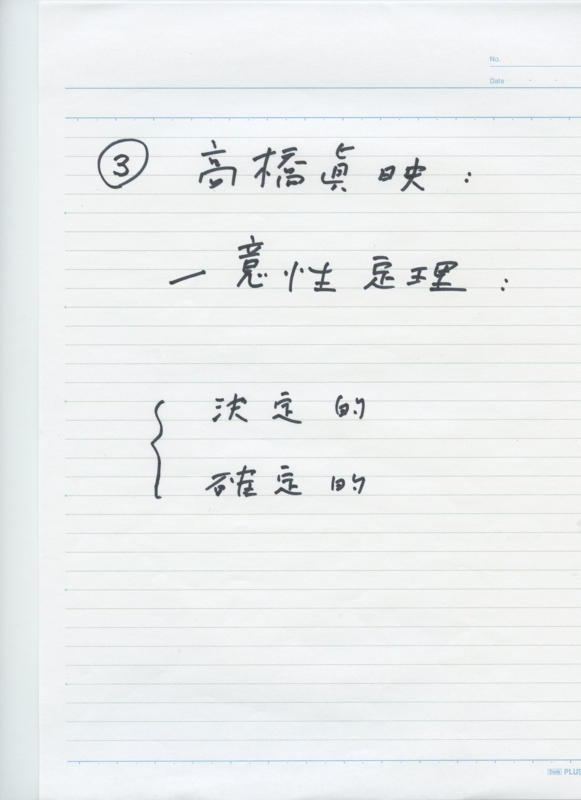 No.
Date
③ 高橋眞映:
一意性定理:
決定的
確定的
PLUS